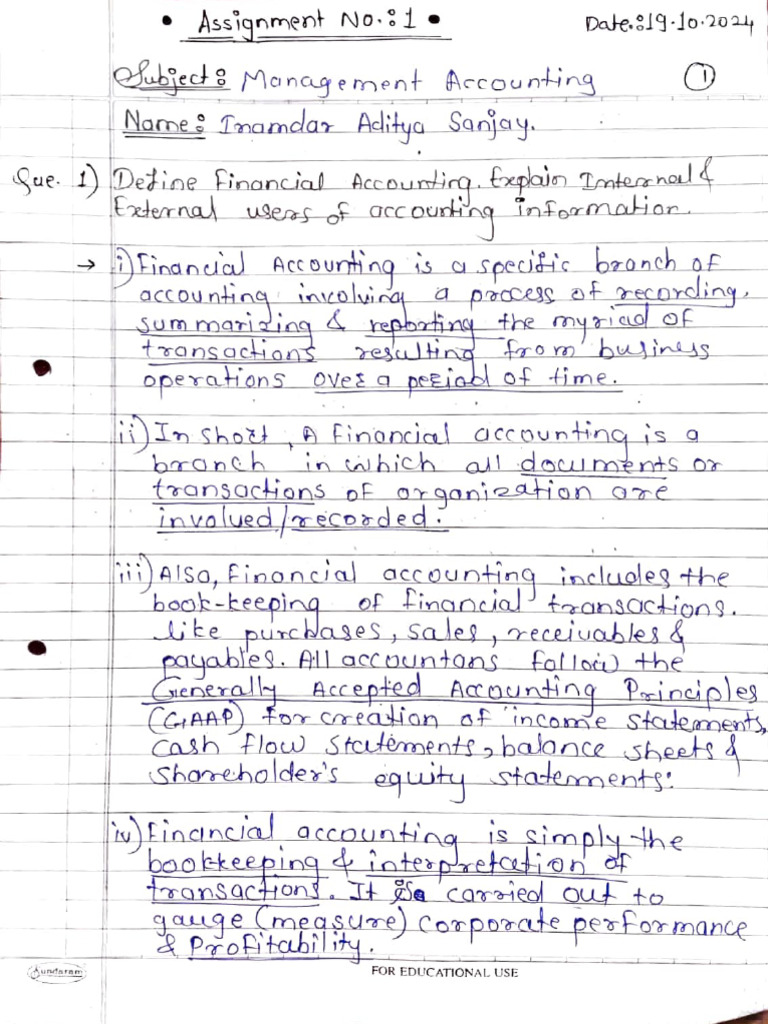 • Assignment No.:1 •
Date:19.10.2024
Subject: Management Accounting
1
Name: Inamdar Aditya Sanjay.
Que. 1) Define Financial Accounting. Explain Internal &
External users of accounting information.
→ i) Financial Accounting is a specific branch of
accounting involving a process of recording,
summarizing & reporting the myriad of
transactions resulting from business
operations over a period of time.
ii) In short, A financial accounting is a
branch in which all documents or
transactions of organization are
involued/recorded.
iii) Also, Financial accounting includes the
book-keeping of financial transactions.
like purchases, sales, receivables &
payables. All accountans follow the
Generally Accepted Accounting Principles
(GAAP) for creation of income statements,
cash flow statements, balance sheets &
shareholder's equity statements.
iv) Financial accounting is simply the
bookkeeping & interpretation of
transactions. It is carried out to
gauge (measure) corporate performance
& Profitability.
Sundaram
FOR EDUCATIONAL USE